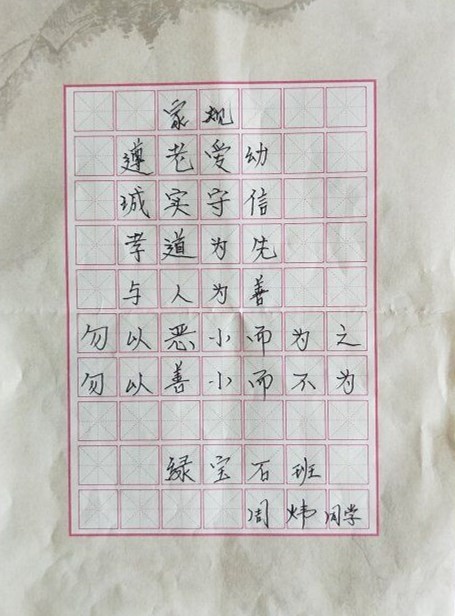 家规
遵老爱幼
城实守信
孝道为先
与人为善
勿以恶小而为之
勿以善小而不为
绿宝石班
周炜同学